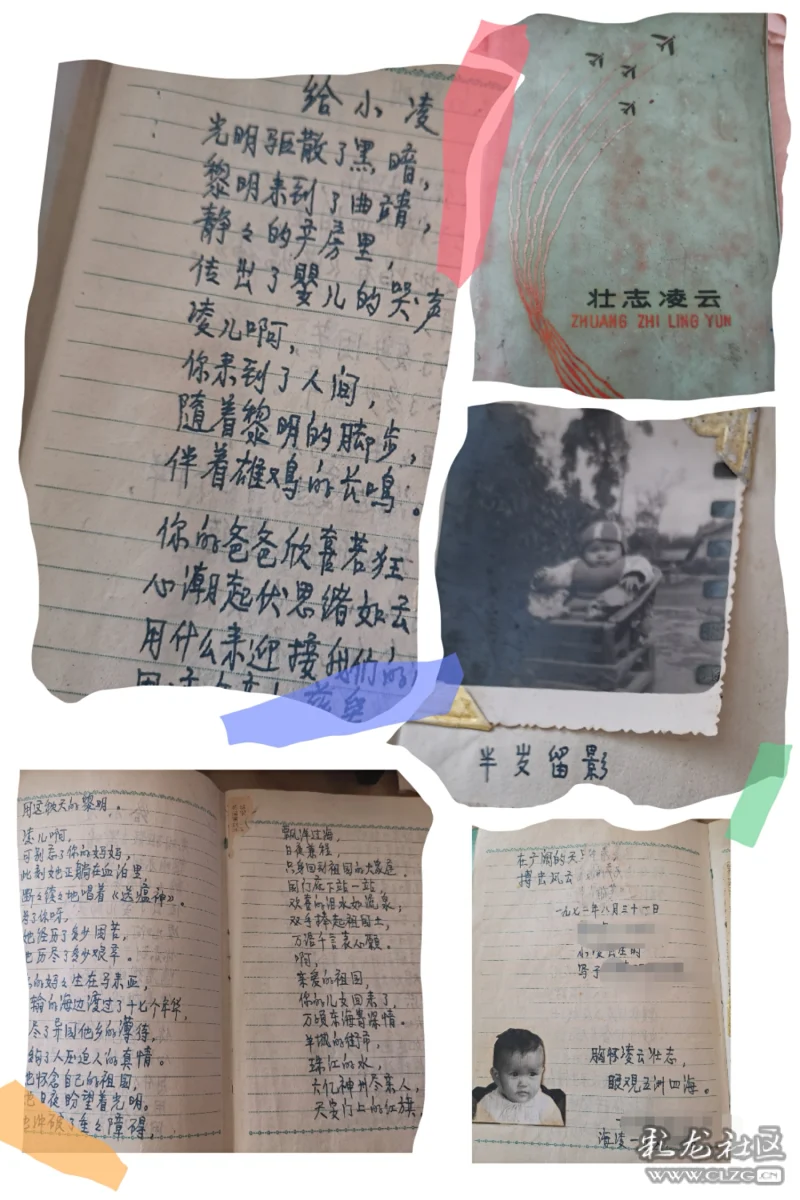 给小凌
光明驱散了黑暗，
黎明来到了曲靖，
静々的产房里，
传出了婴儿的哭声
凌儿啊，
你来到了人间，
随着黎明的脚步，
伴着雄鸡的长鸣。
你的爸爸欣喜若狂
心潮起伏思绪如云
用什么来迎接
壮志凌云
ZHUANG ZHI LING YUN
半岁留影
用这破天的黎明。
凌儿啊，
可别忘了你的妈妈，
此刻她正躺在血泊里，
断々续々地唱着《送瘟神》。
为了你呀，
她经历了多少困苦，
也历尽了多少艰辛。
的妈々生在马来亚，
的海边渡过了十七个年华，
尽了异国他乡的薄待，
了人压迫人的真情。
怀念自己的祖国，
日夜盼望着光明。
冲破了重々障碍，
飘洋过海，
日夜兼程，
只身回到祖国的大家庭。
国门在下站一站，
欢喜的泪水如流泉，
双手捧起祖国土，
万语千言表心愿。
啊，
亲爱的祖国，
你的儿女回来了，
万顷东海着深情。
羊城的街市，
珠江的水，
六亿神州尽亲人，
天安门上的红旗，
在广阔的天
搏击风云
一九七二年八月三十一日
小凌出生时
写于
胸怀凌云壮志，
眼观五洲四海。
海凌一
彩龙社区
WWW.CLZG.CN